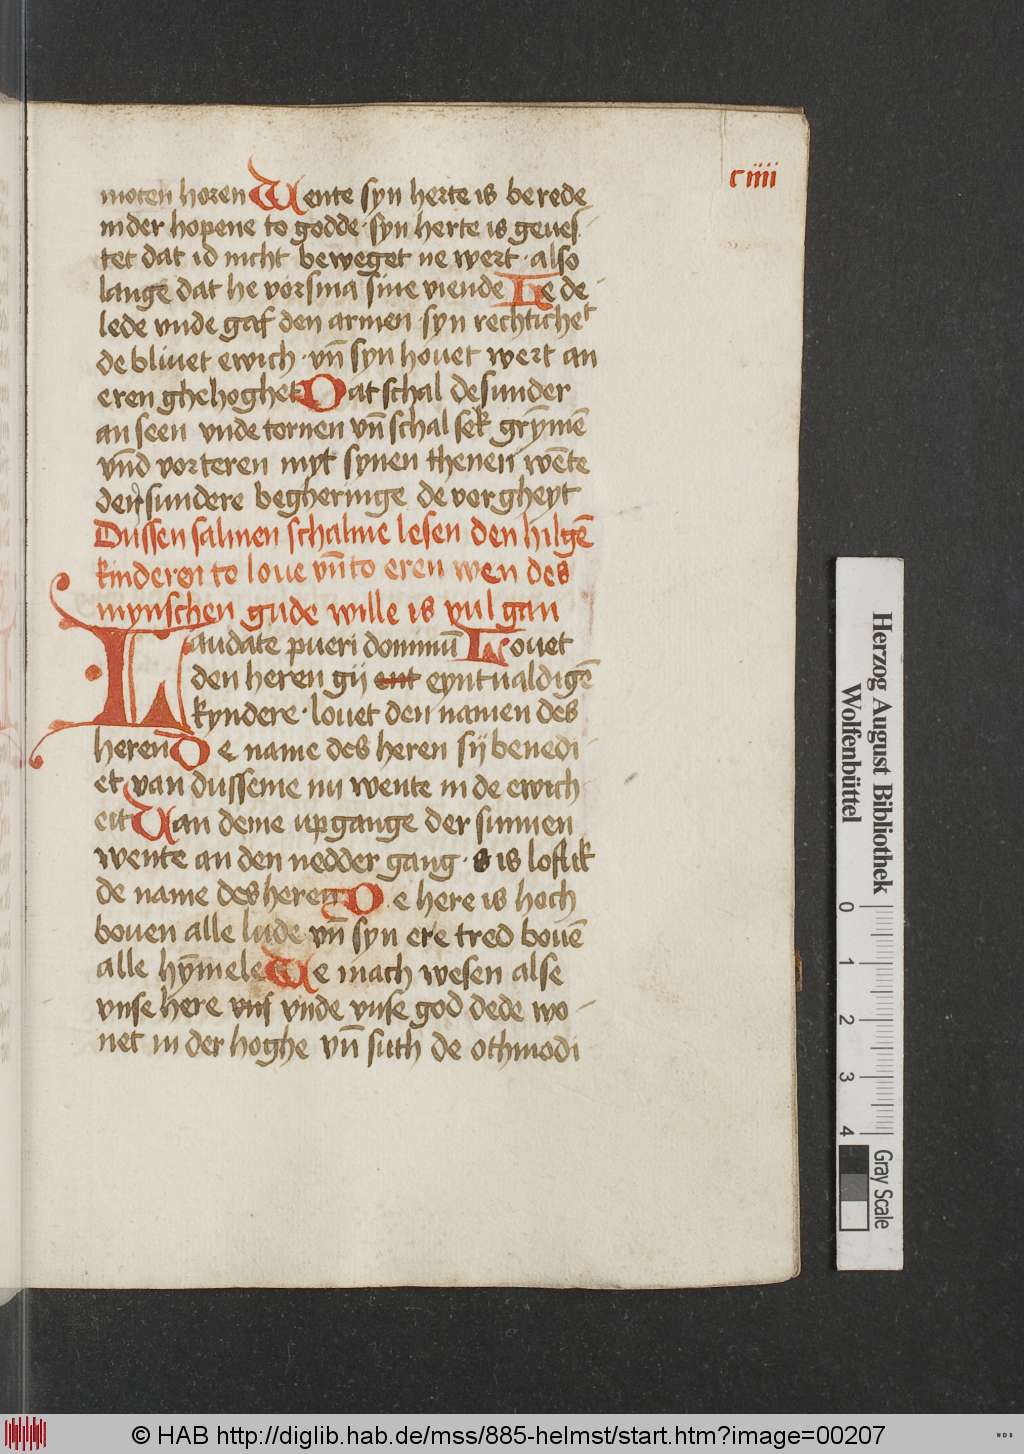 ciiii
moten horen Wente syn herte is berede
in der hopene to godde · syn herte is geues-
tet dat id nicht beweget ne wert · also
lange dat he vorsma sine viende He de-
lede vnde gaf den armen syn rechtichet
de bliuet ewich · vn̄ syn houet wert an
eren ghehoghet Dat schal de sunder
an seen vnde tornen vn̄ schal sek grȳmē
vn̄d vorteren myt synen thenen wēte
der sundere begheringe de vergheyt
Dussen salmen schalme lesen den hilgē
kinderen to loue vn̄ to eren wen des
mynschen gude wille is vul gan
Laudate pueri dominū Louet
den heren gij ent eyntualdigē
kyndere · louet den namen des
heren De name des heren sij benedi-
et van dusseme nu wente in de ewich-
eit Van deme upgange der sunnen
wente an den nedder gang · is loflik
de name des heren De here is hoch
bouen alle lude vn̄ syn ere tred bouē
alle hȳmele We mach wesen alse
vnse here vns vnde vnse god dede wo-
net in der hoghe vn̄ suth de othmodi
Herzog August Bibliothek
Wolfenbüttel
0 1 2 3 4
Gray Scale
© HAB http://diglib.hab.de/mss/885-helmst/start.htm?image=00207
WDB